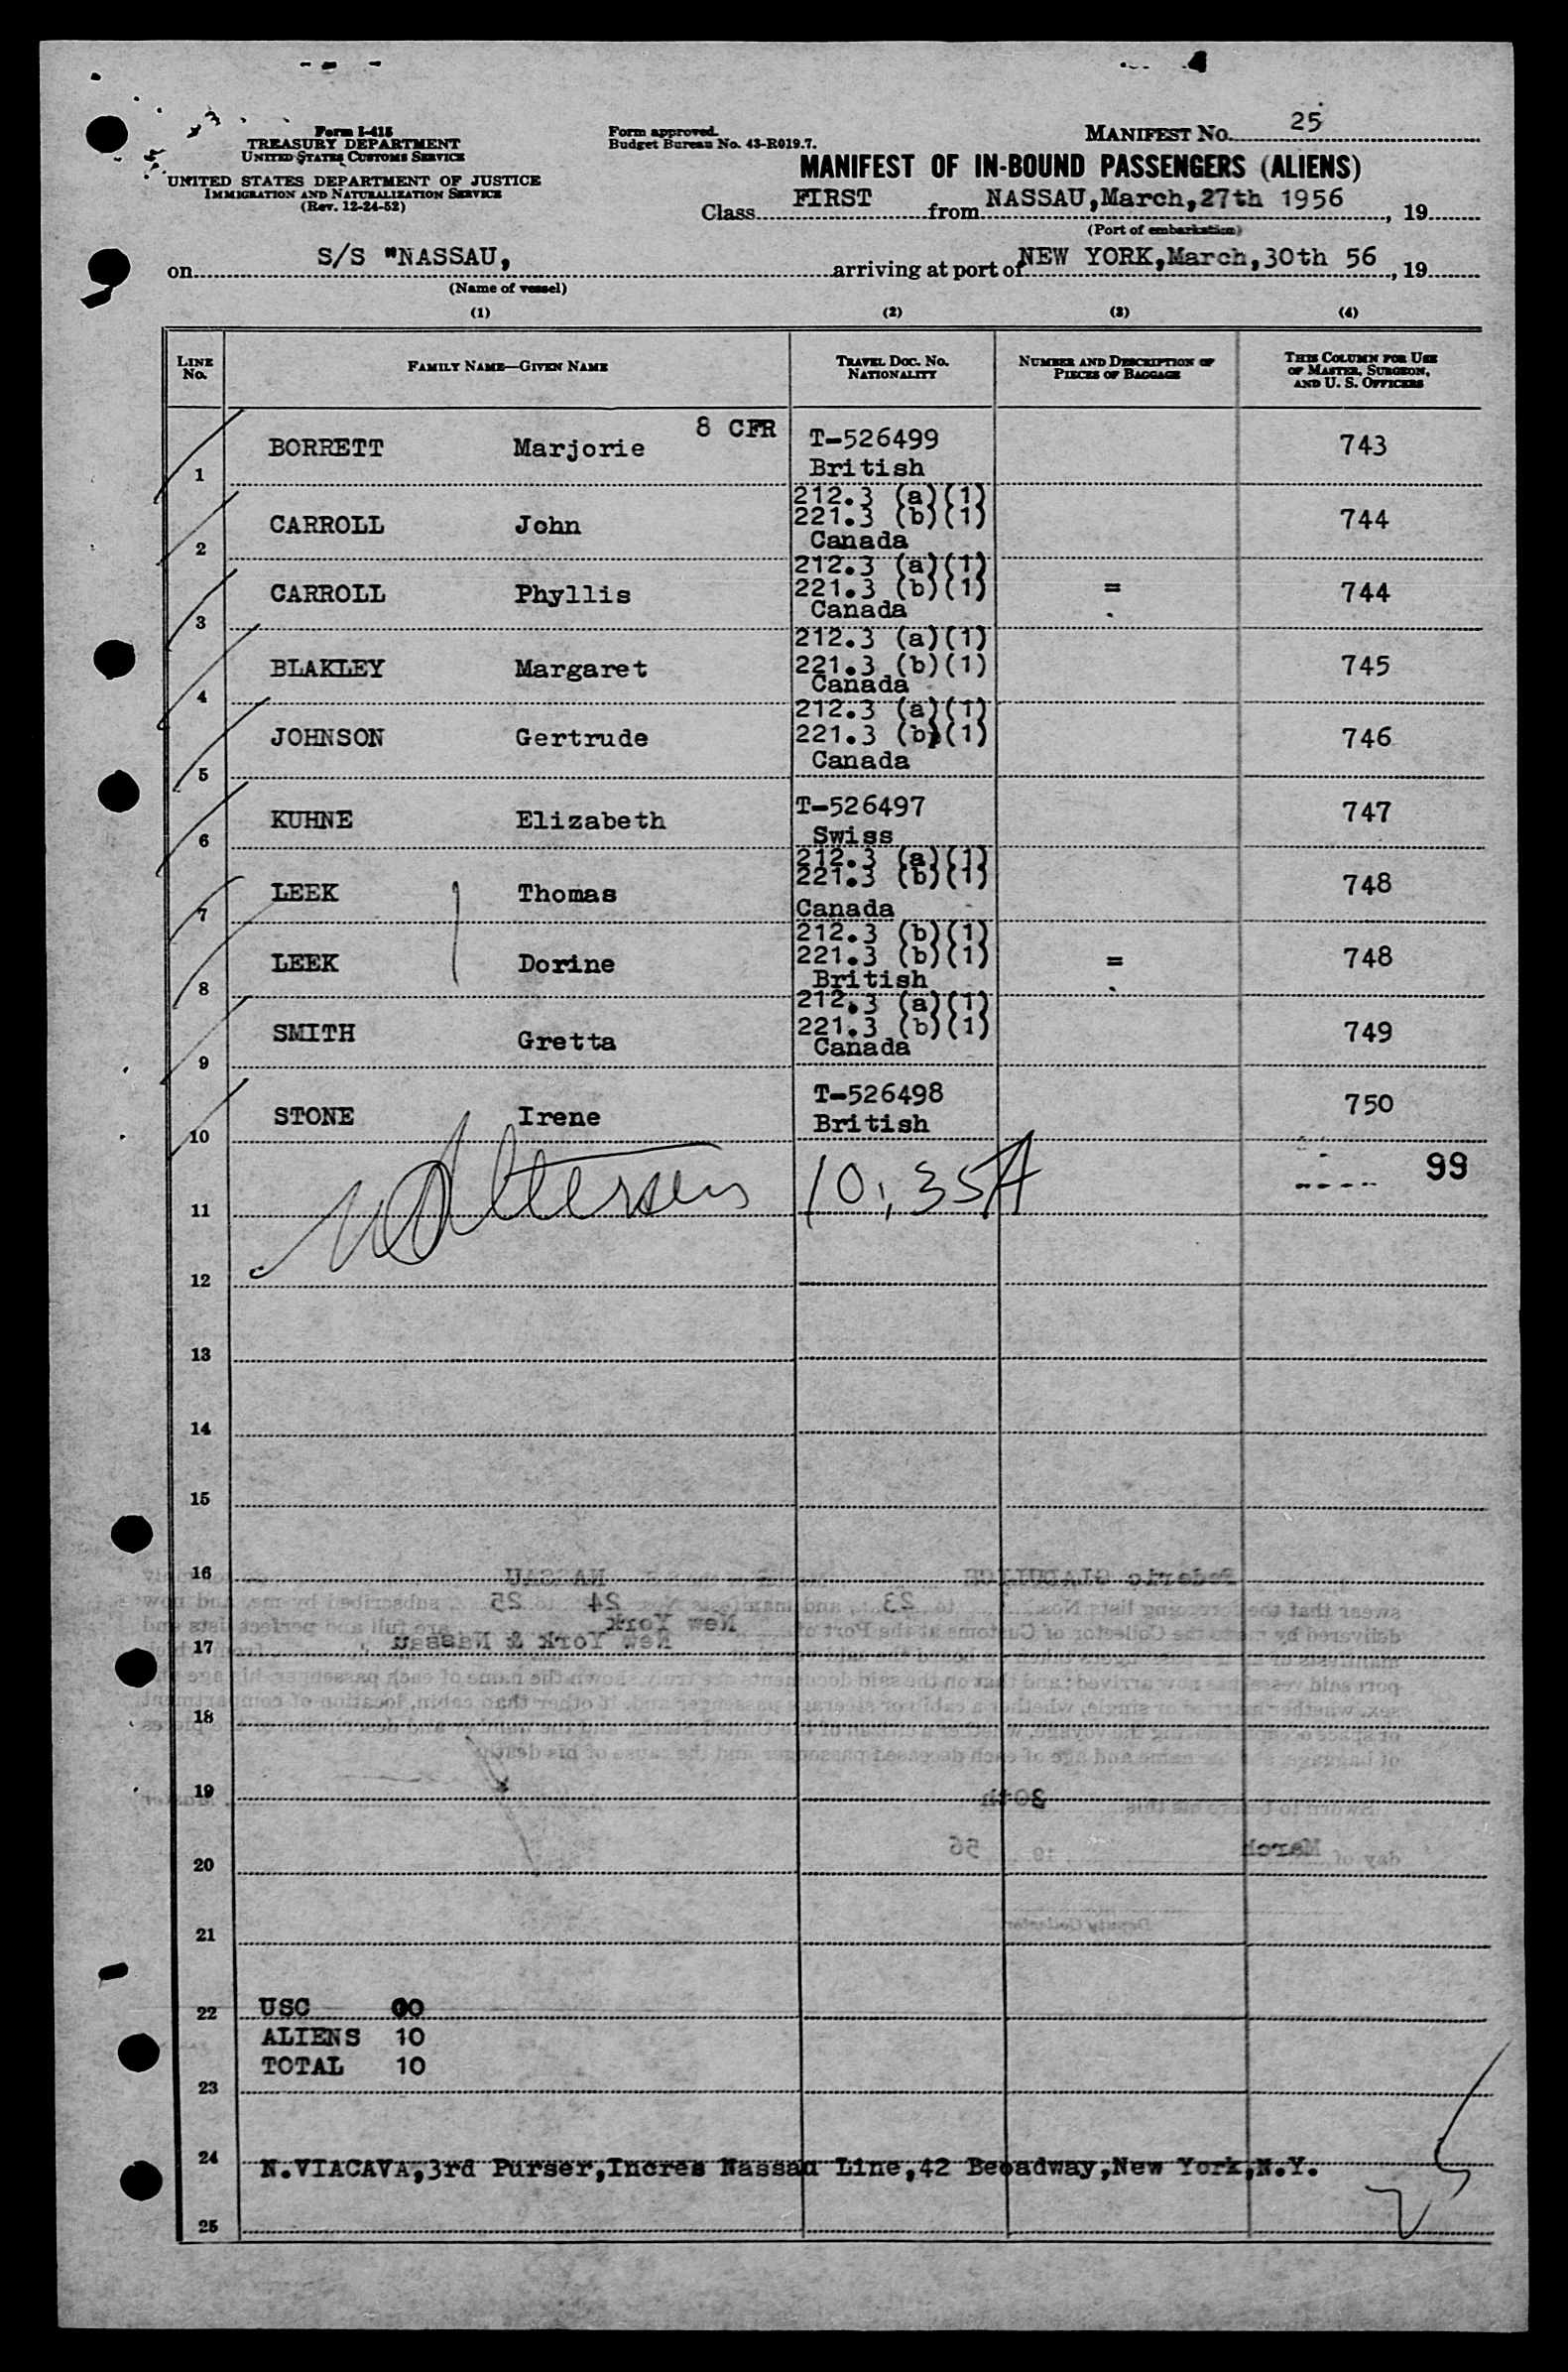 Form I-415
TREASURY DEPARTMENT
UNITED STATES CUSTOMS SERVICE
UNITED STATES DEPARTMENT OF JUSTICE
IMMIGRATION AND NATURALIZATION SERVICE
(Rev. 12-24-52)
Form approved.
Budget Bureau No. 43-R019.7.
MANIFEST NO. 25
MANIFEST OF IN-BOUND PASSENGERS (ALIENS)
Class FIRST from NASSAU,March,27th 1956, 19
(Port of embarkation)
on S/S "NASSAU, arriving at port of NEW YORK,March,30th 56, 19
(Name of vessel)
(1) (2) (3) (4)
LINE NO. FAMILY NAME—GIVEN NAME TRAVEL DOC. NO. NATIONALITY NUMBER AND DESCRIPTION OF PIECES OF BAGGAGE THIS COLUMN FOR USE OF MASTER, SURGEON, AND U. S. OFFICERS
1 BORRETT Marjorie 8 CFR T-526499 743
British
2 CARROLL John 212.3 (a)(1) 744
221.3 (b)(1)
Canada
3 CARROLL Phyllis 212.3 (a)(1) = 744
221.3 (b)(1)
Canada
4 BLAKLEY Margaret 212.3 (a)(1) 745
221.3 (b)(1)
Canada
5 JOHNSON Gertrude 212.3 (a)(1) 746
221.3 (b)(1)
Canada
6 KUHNE Elizabeth T-526497 747
Swiss
7 LEEK Thomas 212.3 (a)(1) 748
221.3 (b)(1)
Canada
8 LEEK Dorine 212.3 (b)(1) = 748
221.3 (b)(1)
British
9 SMITH Gretta 212.3 (a)(1) 749
221.3 (b)(1)
Canada
10 STONE Irene T-526498 750
British
99
11 10,35A
12
13
14
15
16
17
18
19
20
21
22 USC 00
ALIENS 10
TOTAL 10
23
24 N.VIACAVA,3rd Purser,Incres Nassau Line,42 Beoadway,New York,N.Y.
25